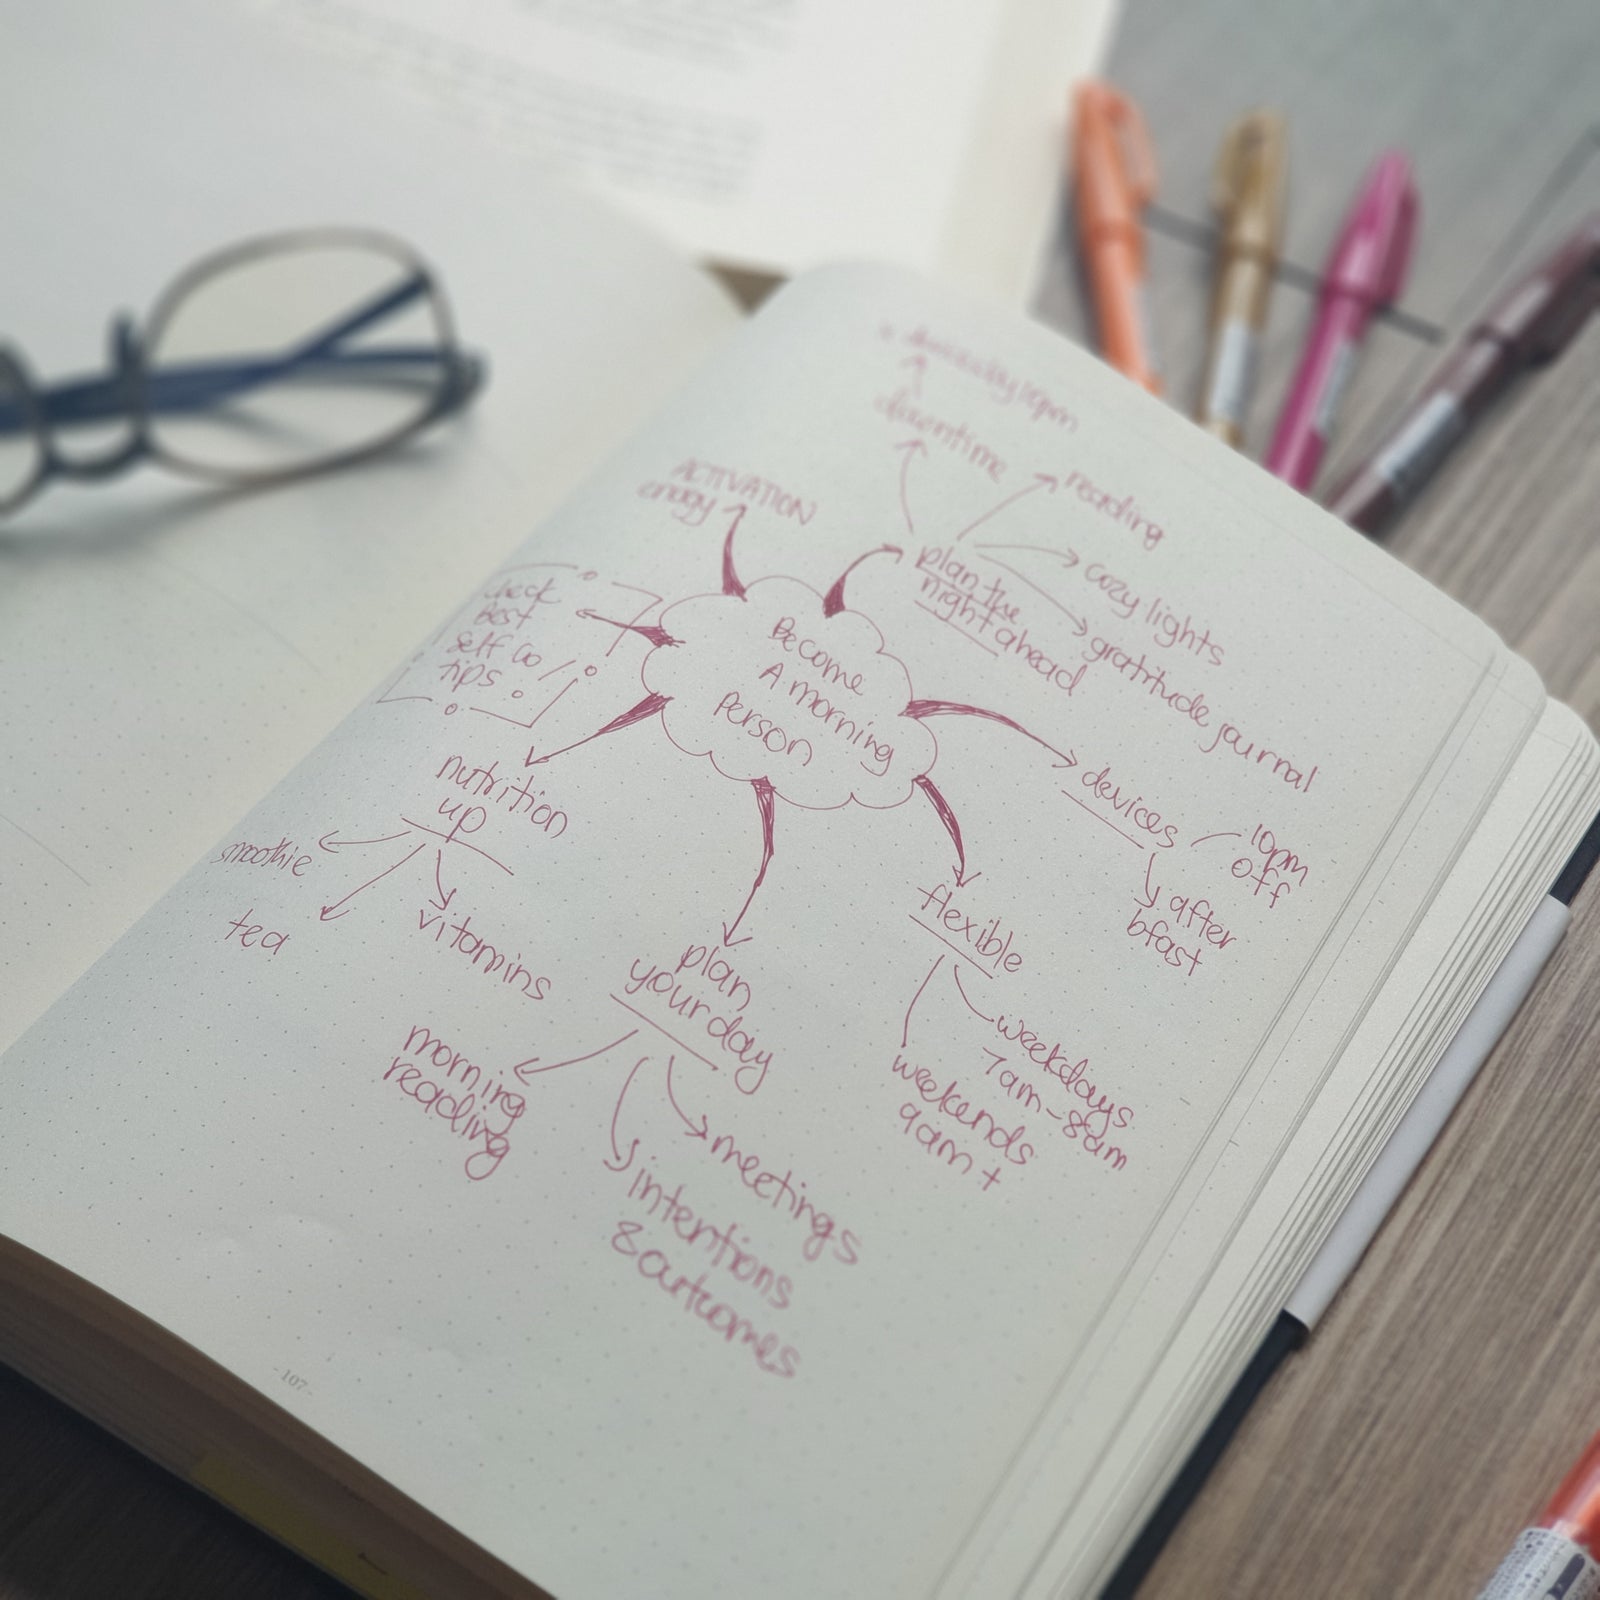 downtime
reading
cozy lights
gratitude journal
plan the
night ahead
ACTIVATION
enagy
check
best
self co
tips
Become
A morning
Person
devices
10pm
off
after
bfast
nutrition
up
smoothie
tea
vitamins
flexible
weekdays
7am-8am
weekends
9am+
plan
your day
morning
reading
meetings
intentions
& outcomes
-107-